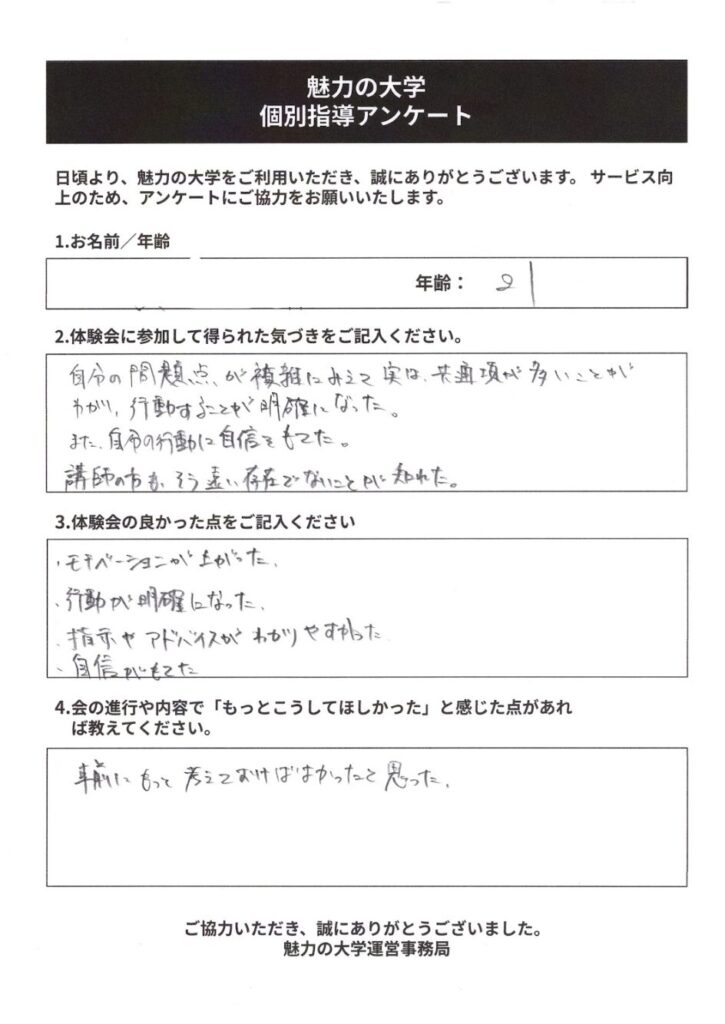 魅力の大学
個別指導アンケート
日頃より、魅力の大学をご利用いただき、誠にありがとうございます。 サービス向
上のため、アンケートにご協力をお願いいたします。
1.お名前／年齢
年齢： 21
2.体験会に参加して得られた気づきをご記入ください。
自分の問題点が複雑にみえて実は、共通項が多いことが
わかり、行動することが明確になった。
また、自分の行動に自信をもてた。
講師の方も、そう遠い存在でないことが知れた。
3.体験会の良かった点をご記入ください
・モチベーションが上がった、
・行動が明確になった、
・指示やアドバイスがわかりやすかった
・自信がもてた
4.会の進行や内容で「もっとこうしてほしかった」と感じた点があれ
ば教えてください。
事前にもっと考えておけばよかったと思った。
ご協力いただき、誠にありがとうございました。
魅力の大学運営事務局